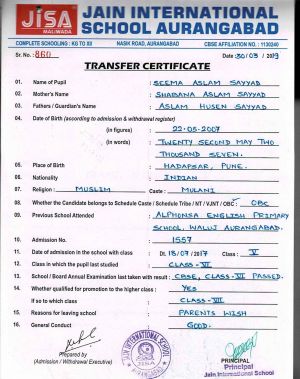 JISA
MALIWADA
JAIN INTERNATIONAL
SCHOOL AURANGABAD
COMPLETE SCHOOLING : KG TO XII NASIK ROAD, AURANGABAD CBSE AFFILIATION NO. : 1130240
Sr. No. : 860 Date : 30/03/2019
TRANSFER CERTIFICATE
01. Name of Pupil : SEEMA ASLAM SAYYAD
02. Mother's Name : SHABANA ASLAM SAYYAD
03. Fathers / Guardian's Name : ASLAM HUSEN SAYYAD
04. Date of Birth (according to admission & withdrawal register)
(in figures) : 22-05-2007
(in words) : TWENTY SECOND MAY TWO
THOUSAND SEVEN.
05. Place of Birth : HADAPSAR, PUNE.
06. Nationality : INDIAN
07. Religion : MUSLIM Caste : MULANI
08. Whether the Candidate belongs to Schedule Caste / Schedule Tribe / NT / VJNT / OBC : OBC
09. Previous School Attended : ALPHONSA ENGLISH PRIMARY
SCHOOL, WALUJ AURANGABAD.
10. Admission No. : 1557
11. Date of admission in the school with class : Dt. 18/07/2017 Class : V
12. Class in which the pupil last studied : CLASS-VI
13. School / Board Annual Examination last taken with result : CBSE, CLASS-VI PASSED.
14. Whether qualified for promotion to the higher class : YES
If so to which class : CLASS-VII
15. Reasons for leaving school : PARENTS WISH
16. General Conduct : GOOD.
Prepared by
(Admission / Withdrawal Executive)
JAIN INTERNATIONAL SCHOOL
AURANGABAD
PRINCIPAL
Principal
Jain International School